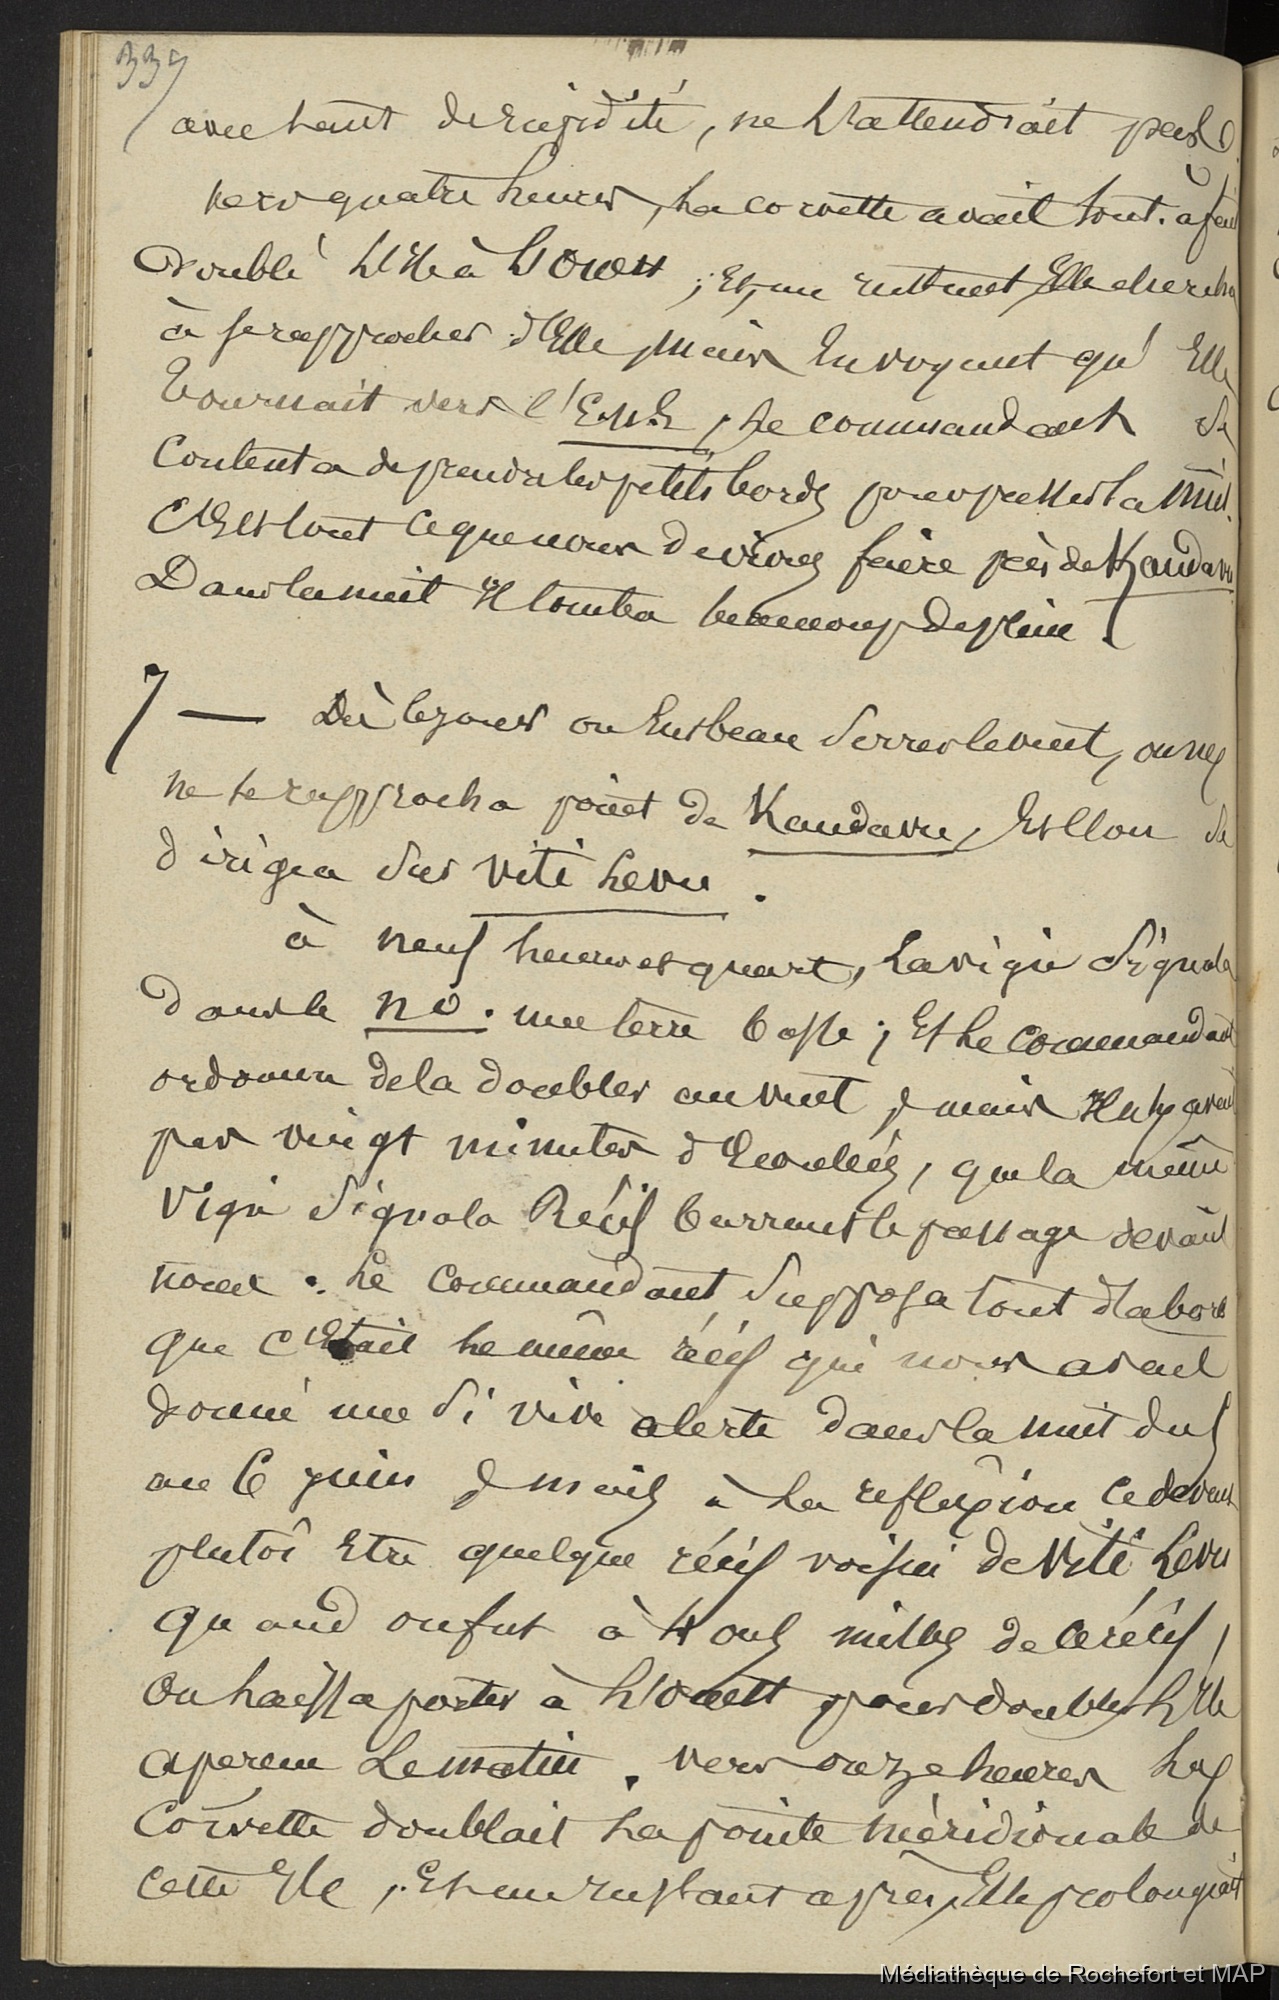 337
avec tant de rapidité, ne l'attendrait pas
vers quatre heures, La corvette avait tout. à fait
Doublé L'Ile à L'Ouest ; Et, un instant Elle chercha
à se rapprocher d'Elle, mais En voyant qu' Elle
tournait vers l'E.N.E, Le commandant se
Contenta de prendre les petits bords pour passer la nuit.
C'Est tout ce que nous devions faire près de Kandavu
Dans la nuit Il tomba beaucoup de pluie.
7 — Dès le jour on Eut beau serrer le vent, on
ne se rapprocha point de Kandavu, Et l'on se
dirigea sur Viti Levu.
à neuf heures et quart, La vigie signala
dans le NO. une terre basse ; Et Le Commandant
ordonna de la doubler au vent, mais Il n'y avait
pas vingt minutes d'Ecoulées, que la même
Vigie signala Récif barrant le passage devant
nous. Le Commandant Supposa tout d'abord
que C'Etait Le même récif qui nous avait
donné une si vive alerte dans la nuit du 5
au 6 juin, mais à La reflexion ce devait
plutôt Etre quelque récif voisin de Viti Levu
quand on fut à 4 ou 5 milles de Ce récif,
On Laissa porter à L'Ouest pour doubler L'Ile
aperçue Le matin. Vers onze heures La
Corvette doublait La pointe méridionale de
Cette Ile, Et un instant après, Elle prolongeait
Médiathèque de Rochefort et MAP